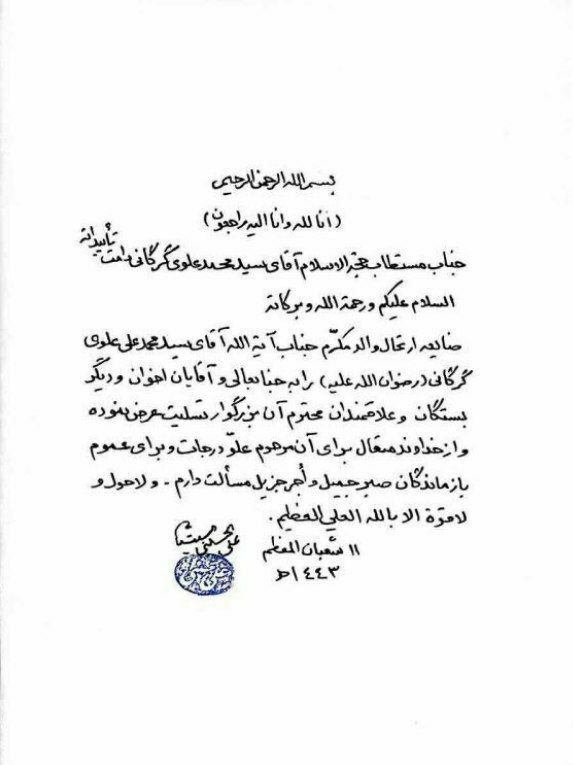 بسم الله الرحمن الرحیم
(انا لله وانا الیه راجعون)
جناب مستطاب حجة الاسلام آقای سید محمد علوی گرگانی دامت تأییداته
السلام علیکم ورحمة الله وبرکاته
ضایعه ارتحال والد مکرّم جناب آیة الله آقای سید محمد علی علوی
گرگانی (رضوان الله علیه) را به جنابعالی و آقایان اخوان و دیگر
بستگان و علاقمندان محترم آن بزرگوار تسلیت عرض نموده
و از خداوند متعال برای آن مرحوم علوّ درجات و برای عموم
بازماندگان صبر جمیل و أجر جزیل مسألت دارم - و لا حول و
لا قوة الا بالله العلي العظیم.
١١ شعبان المعظم
١٤٤٣ هـ
علی الحسینی السیستانی